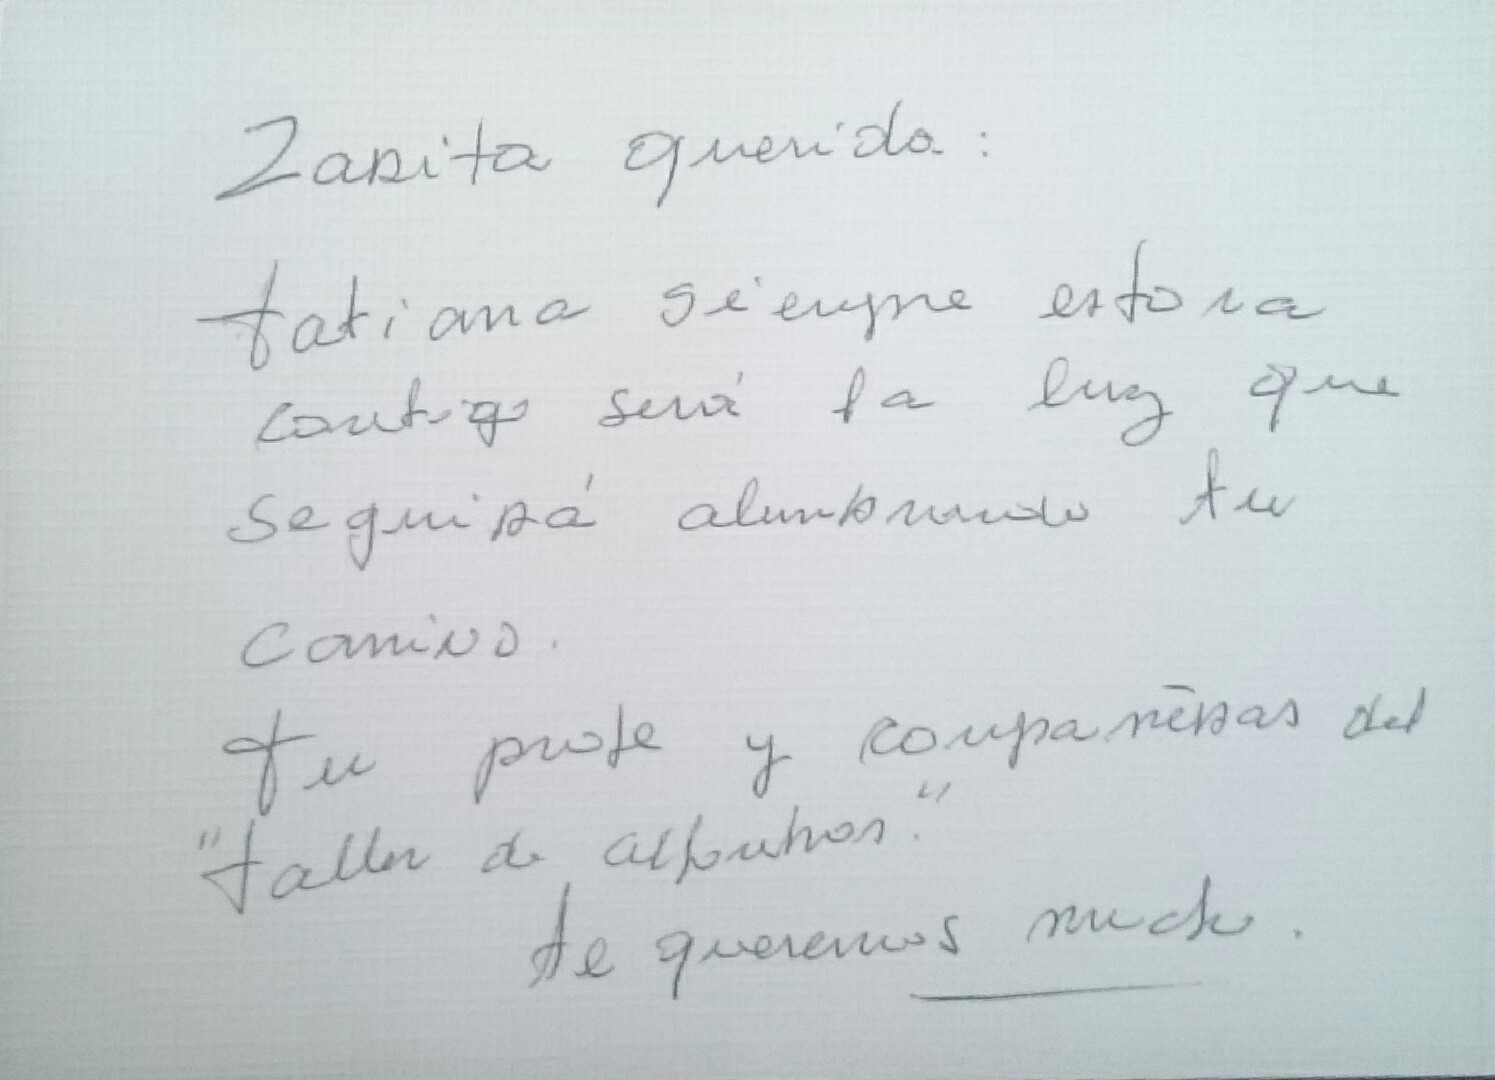 Zarita querida:
Tatiana siempre estora
contigo será la luz que
seguirá alumbrando tu
camino.
Tu profe y compañeras del
"Taller de alfombras."
Te queremos mucho.